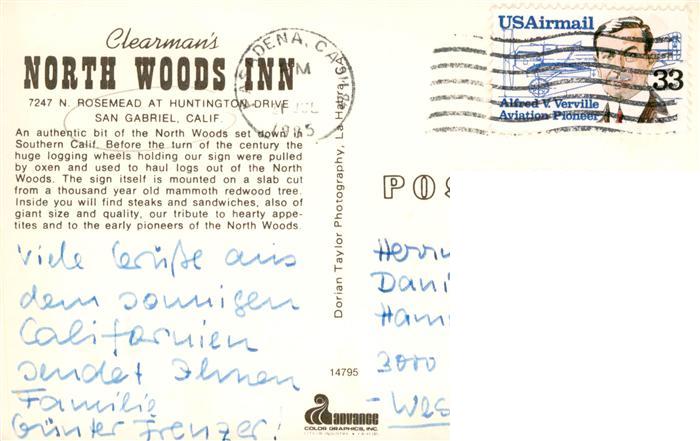 Clearman's
NORTH WOODS INN
7247 N. ROSEMEAD AT HUNTINGTON DRIVE
SAN GABRIEL, CALIF.
An authentic bit of the North Woods set down in
Southern Calif. Before the turn of the century the
huge logging wheels holding our sign were pulled
by oxen and used to haul logs out of the North
Woods. The sign itself is mounted on a slab cut
from a thousand year old mammoth redwood tree.
Inside you will find steaks and sandwiches, also of
giant size and quality, our tribute to hearty appe-
tites and to the early pioneers of the North Woods.
Viele Grüße aus
dem sonnigen
Californien
sendet Ihnen
Familie
Günter Frenzer!
Dorian Taylor Photography, La Habra
14795
advance
COLOR GRAPHICS, INC.
PASADENA, CA
PM
1985
USAirmail
33
Alfred V. Verville
Aviation Pioneer
POS
Herrn
Dani
Hann
3000
-Wes